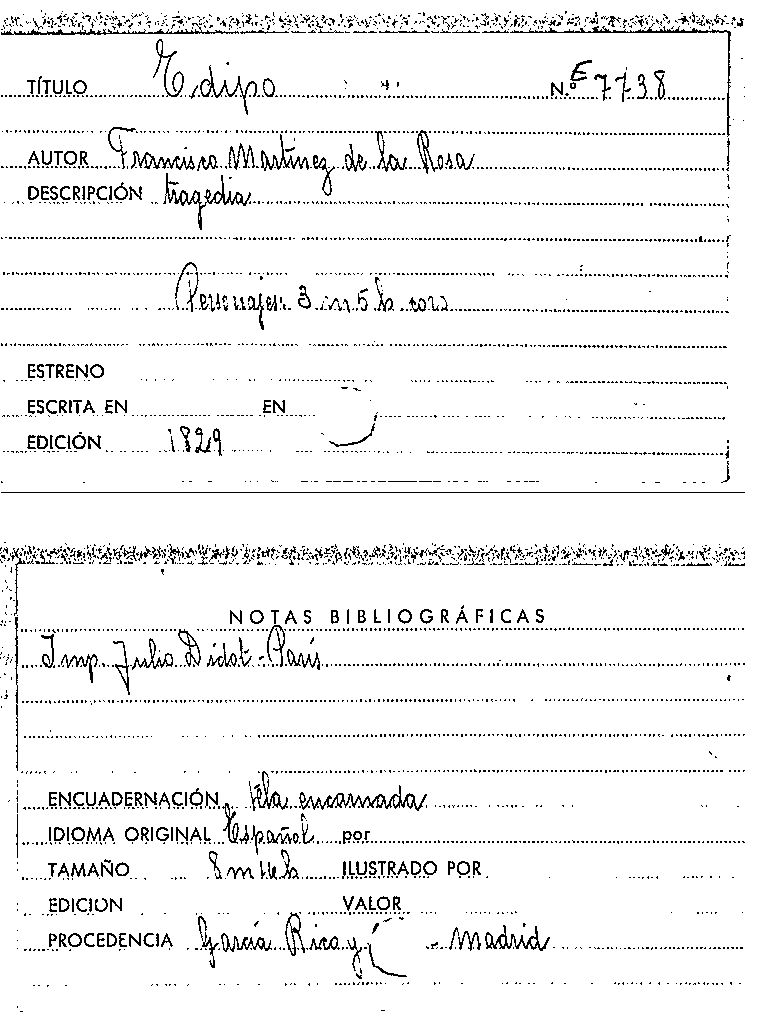 TÍTULO Edipo N.º E 7738
AUTOR Francisco Martinez de la Rosa
DESCRIPCIÓN tragedia
Personajes: 3 m 5 h coro
ESTRENO
ESCRITA EN EN
EDICIÓN 1829
NOTAS BIBLIOGRÁFICAS
Imp. Julio Didot - París
ENCUADERNACIÓN tela encarnada
IDIOMA ORIGINAL Español por
TAMAÑO 8 m ILUSTRADO POR
EDICION VALOR
PROCEDENCIA García Rico y - Madrid